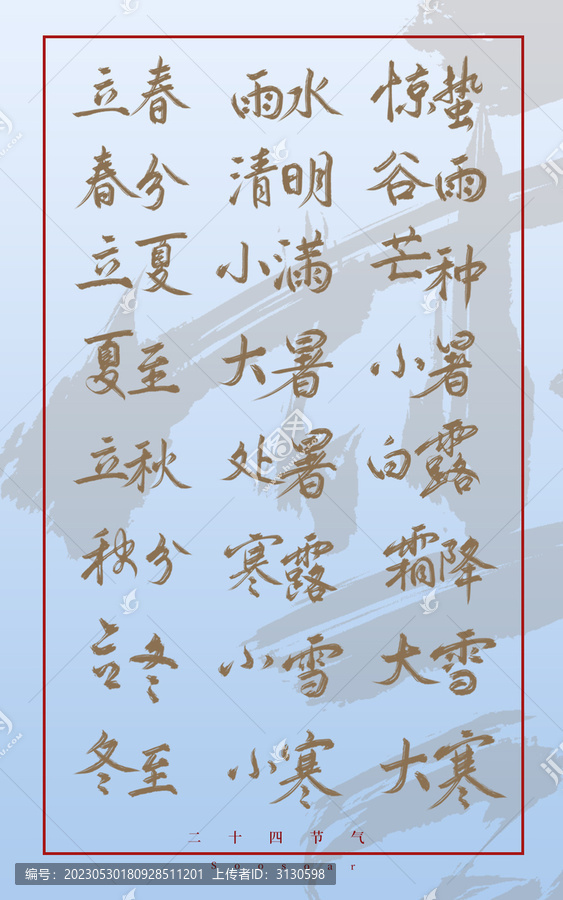 立春 雨水 惊蛰
春分 清明 谷雨
立夏 小满 芒种
夏至 大暑 小暑
立秋 处暑 白露
秋分 寒露 霜降
立冬 小雪 大雪
冬至 小寒 大寒
二十四节气
Soosoar
编号：20230530180928511201 上传者ID：3130598